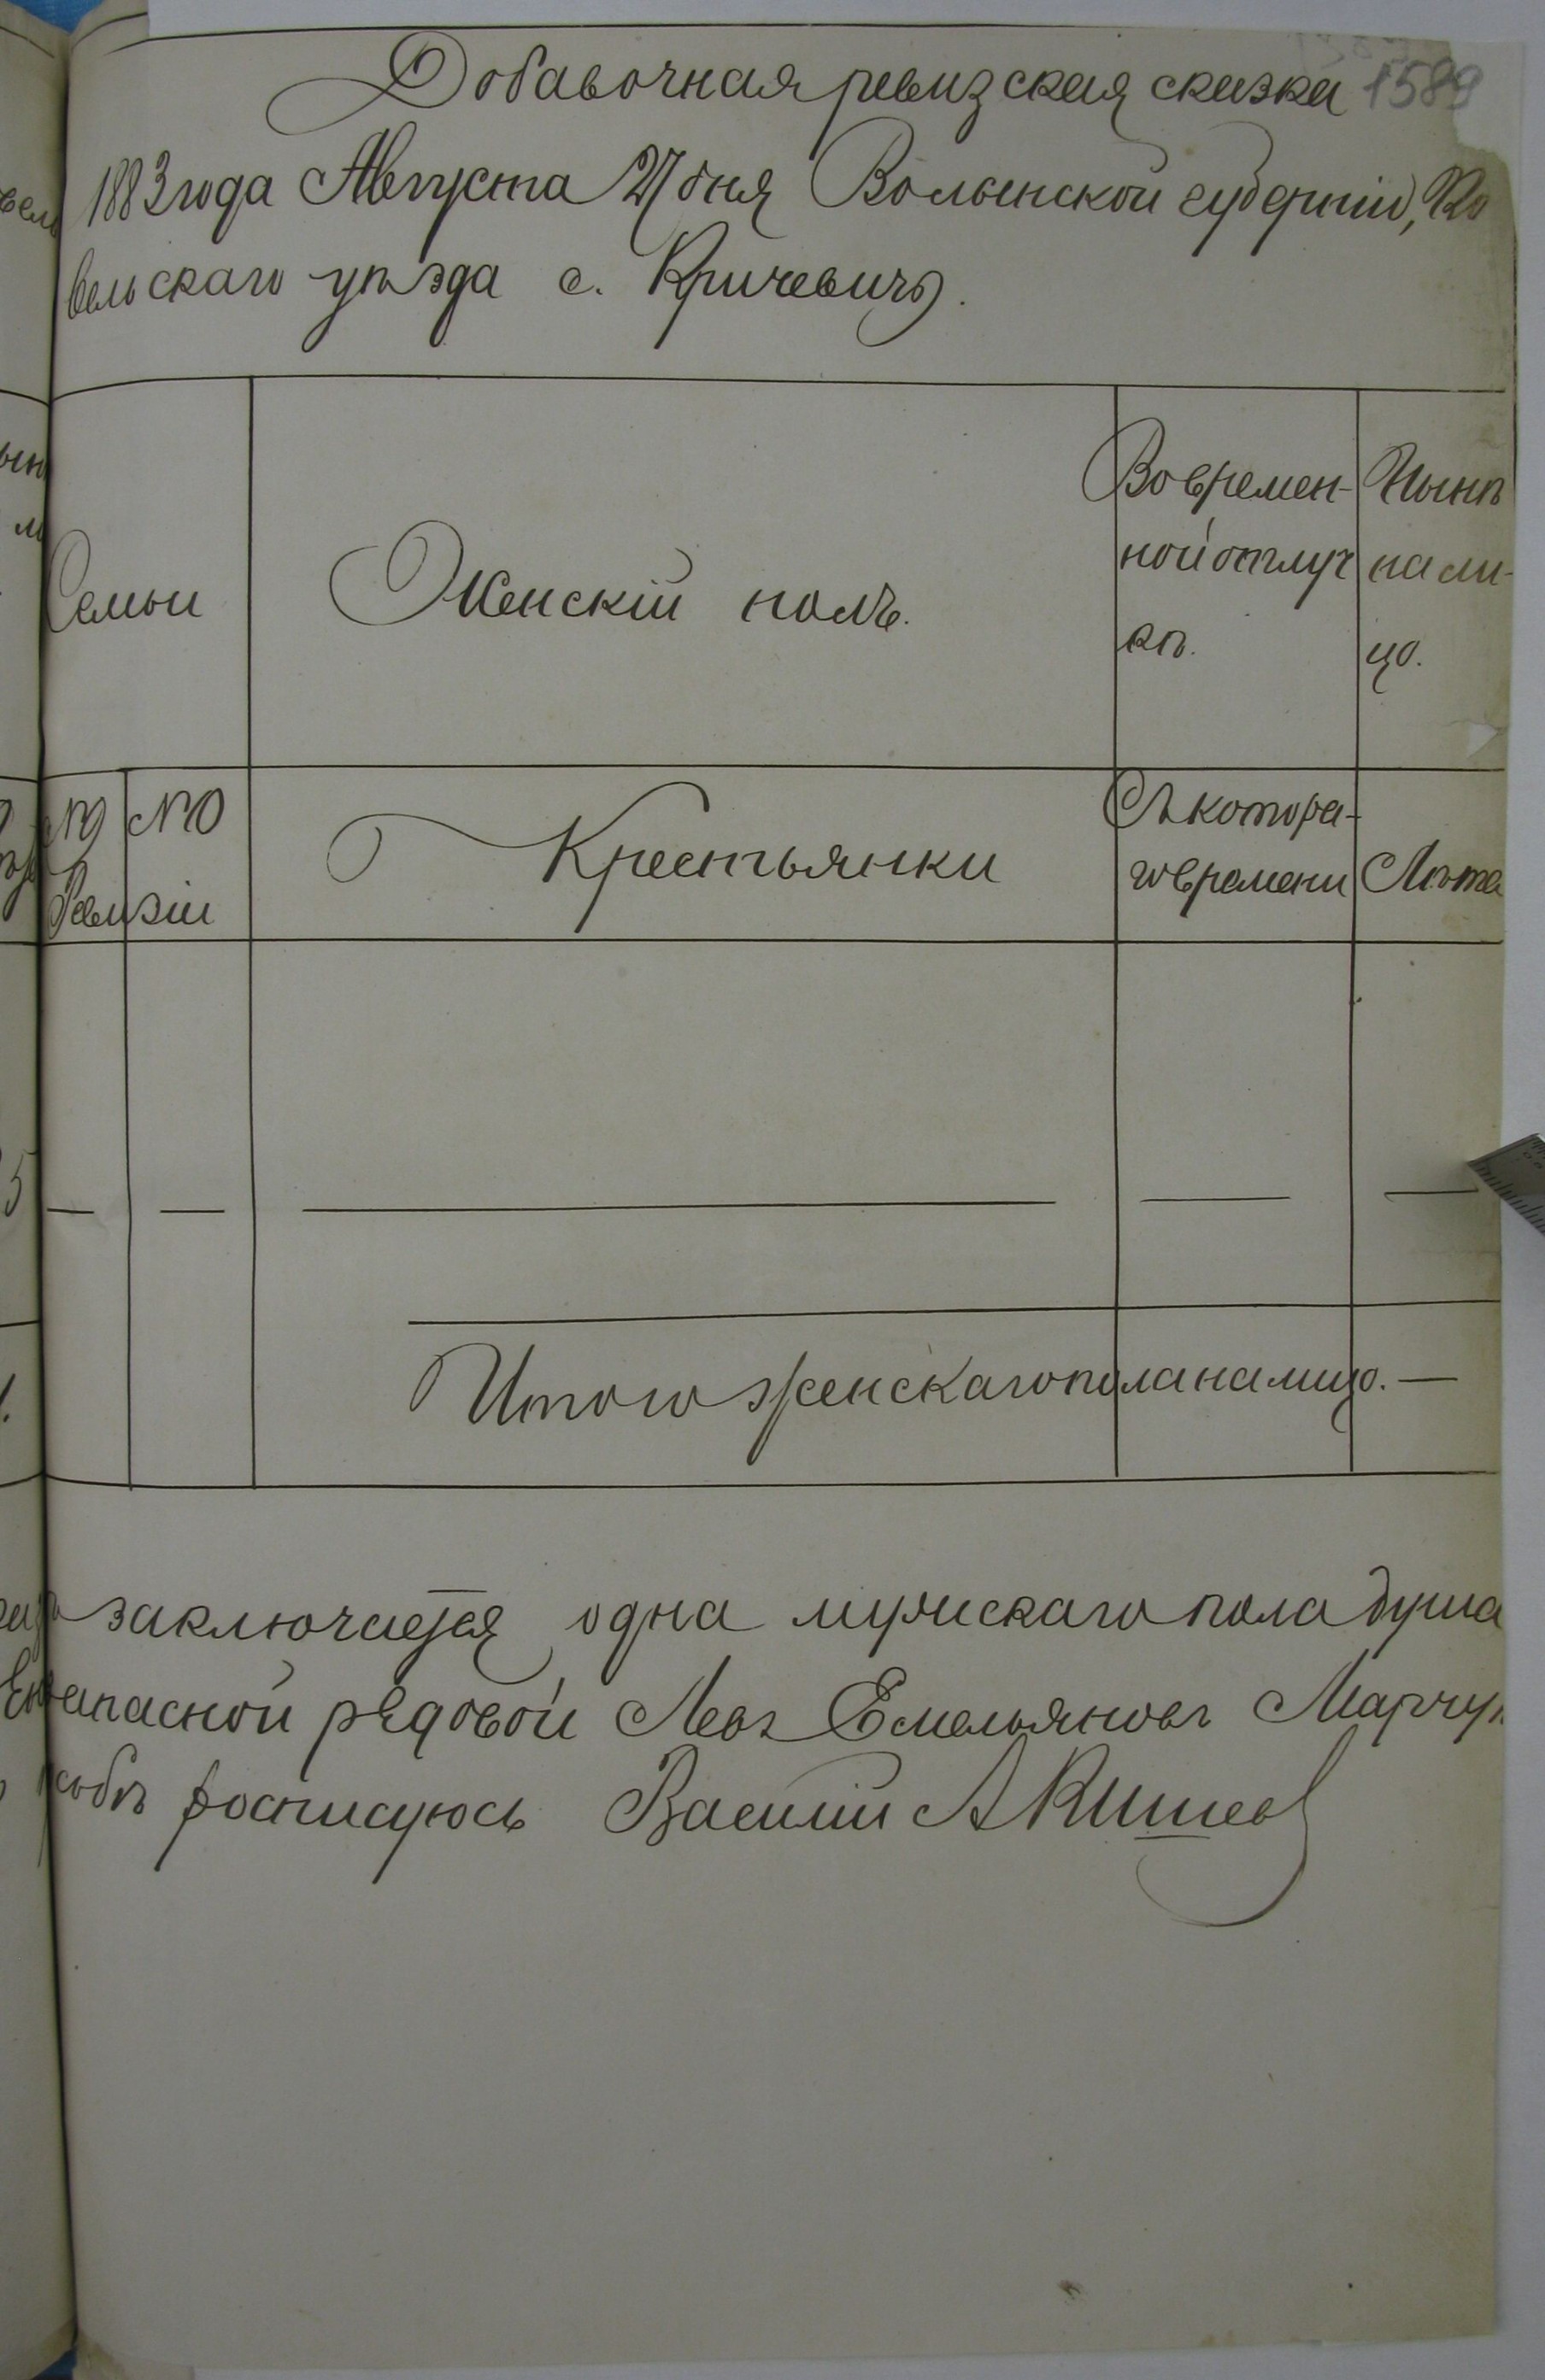 Добавочная ревизская сказка 1589
1883 года Августа 27 дня Волынской губернии, Ко
вельскаго уѣзда с. Кричевичъ.
Семьи
Женскій полъ.
Во времен-
ной отлуч
кѣ.
Нынѣ
на ли-
цо.
№ №
Ревизіи
Крестьянки
Съ котора-
го времени
Лѣта
— — — — —
Итого женскаго пола на лицо. —
заключается одна мужскаго пола душа
запасной рядовой Левъ Емельяновъ Марчук
росписуюсь Василій